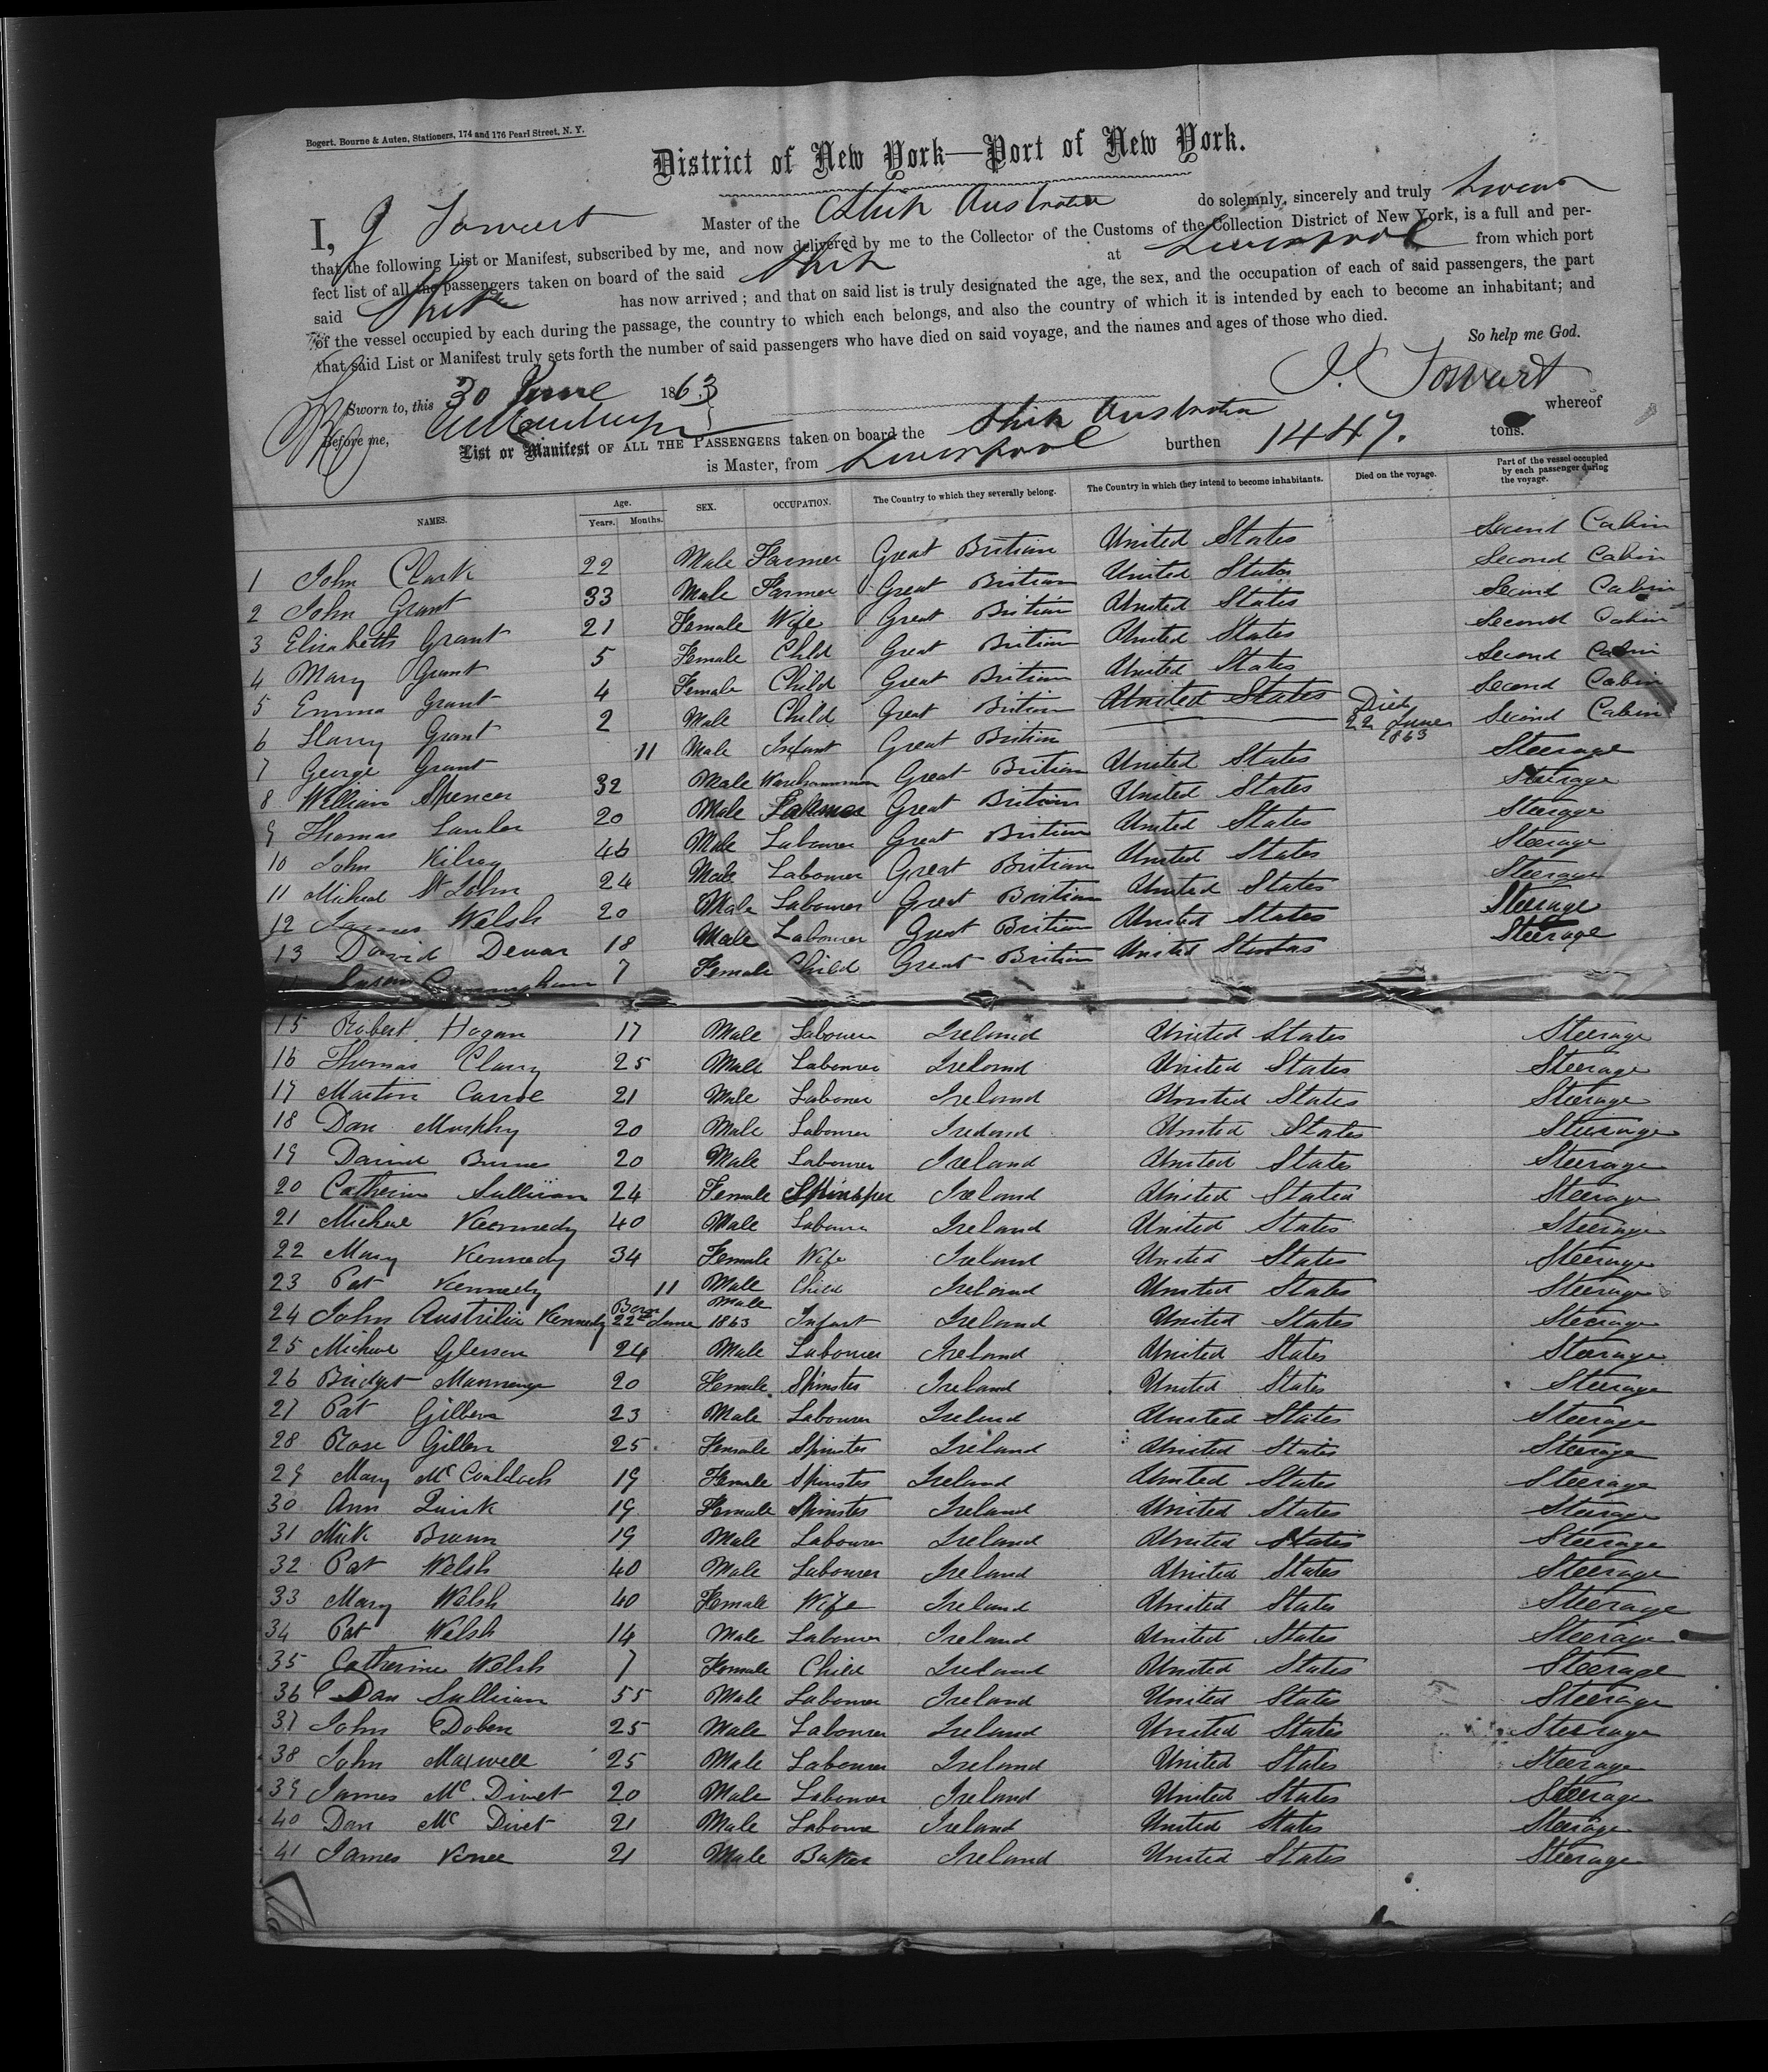 Bogert, Bourne & Auten, Stationers, 174 and 176 Pearl Street, N. Y.
District of New York—Port of New York.
I, J Towart Master of the Ship Australia do solemnly, sincerely and truly Swear
that the following List or Manifest, subscribed by me, and now delivered by me to the Collector of the Customs of the Collection District of New York, is a full and per-
fect list of all the passengers taken on board of the said Ship at Liverpool from which port
said Ship has now arrived; and that on said list is truly designated the age, the sex, and the occupation of each of said passengers, the part
of the vessel occupied by each during the passage, the country to which each belongs, and also the country of which it is intended by each to become an inhabitant; and
that said List or Manifest truly sets forth the number of said passengers who have died on said voyage, and the names and ages of those who died.
So help me God.
Sworn to, this 30 June 1863 J. Towart
Before me,
List or Manifest OF ALL THE PASSENGERS taken on board the Ship Australia whereof
is Master, from Liverpool burthen 1447. tons.
NAMES. Age. Years. Months. SEX. OCCUPATION. The Country to which they severally belong. The Country in which they intend to become inhabitants. Died on the voyage. Part of the vessel occupied by each passenger during the voyage.
1 John Clark 22 Male Farmer Great Britian United States Second Cabin
2 John Grant 33 Male Farmer Great Britian United States Second Cabin
3 Elizabeth Grant 21 Female Wife Great Britian United States Second Cabin
4 Mary Grant 5 Female Child Great Britian United States Second Cabin
5 Emma Grant 4 Female Child Great Britian United States Second Cabin
6 Harry Grant 2 Male Child Great Britian United States Second Cabin
7 George Grant 11 Male Infant Great Britian Died 22 June 1863 Second Cabin
8 William Spencer 32 Male Great Britian United States Steerage
9 Thomas Lawler 20 Male Great Britian United States Steerage
10 John Kilroy 46 Male Labourer Great Britian United States Steerage
11 Micheal St John 24 Male Labourer Great Britian United States Steerage
12 James Welsh 20 Male Labourer Great Britian United States Steerage
13 David Dewar 18 Male Labourer Great Britian United States Steerage
Susan Cunningham 7 Female Child Great Britian United States Steerage
15 Robert Hogan 17 Male Labourer Ireland United States Steerage
16 Thomas Clary 25 Male Labourer Ireland United States Steerage
17 Martin Carrol 21 Male Labourer Ireland United States Steerage
18 Dan Murphy 20 Male Labourer Ireland United States Steerage
19 David Burns 20 Male Labourer Ireland United States Steerage
20 Catherine Sullivan 24 Female Ireland United States Steerage
21 Micheal Kennedy 40 Male Labourer Ireland United States Steerage
22 Mary Kennedy 34 Female Wife Ireland United States Steerage
23 Pat Kennedy 11 Male Child Ireland United States Steerage
24 John Austrilia Kennedy Born 22nd June 1863 Male Infant Ireland United States Steerage
25 Micheal Gleeson 24 Male Labourer Ireland United States Steerage
26 Bridget 20 Female Spinster Ireland United States Steerage
27 Pat Gillen 23 Male Labourer Ireland United States Steerage
28 Rose Gillen 25 Female Spinster Ireland United States Steerage
29 Mary 19 Female Spinster Ireland United States Steerage
30 Ann Quirk 19 Female Spinster Ireland United States Steerage
31 Mick Brown 19 Male Labourer Ireland United States Steerage
32 Pat Welsh 40 Male Labourer Ireland United States Steerage
33 Mary Welsh 40 Female Wife Ireland United States Steerage
34 Pat Welsh 14 Male Labourer Ireland United States Steerage
35 Catherine Welsh 7 Female Child Ireland United States Steerage
36 Dan Sullivan 55 Male Labourer Ireland United States Steerage
37 John Doben 25 Male Labourer Ireland United States Steerage
38 John Maxwell 25 Male Labourer Ireland United States Steerage
39 James Mc Divet 20 Male Labourer Ireland United States Steerage
40 Dan Mc Divet 21 Male Labourer Ireland United States Steerage
41 James 21 Male Baker Ireland United States Steerage